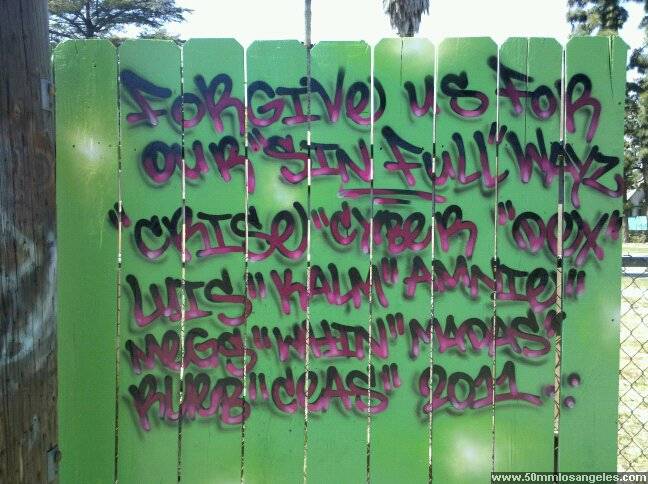 FORGIVE US FOR
OUR "SIN FULL" WAYZ
"CRISE" "CYBER "DOX"
LUIS" KALM" AMNIE"
MEGS "WHIN" MADAS"
RUEB "CEAS" 2011
www.50mmlosangeles.com